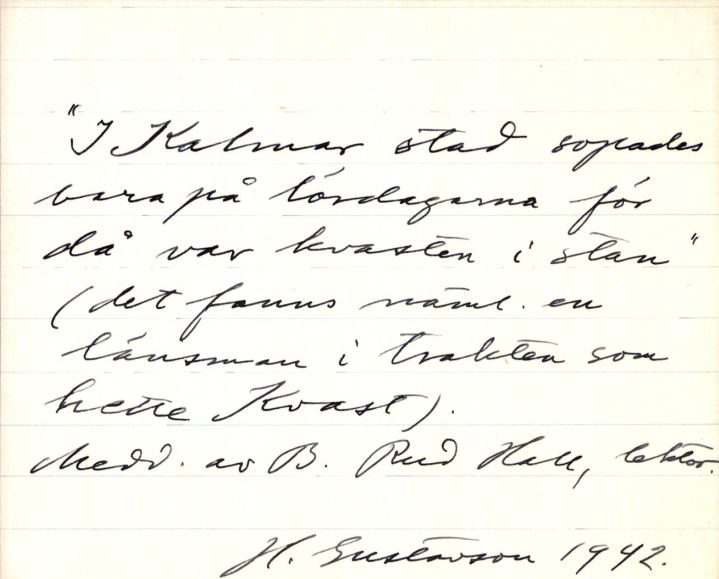 "I Kalmar stad sopades
bara på lördagarna för
då var kvasten i stan"
(det fanns näml. en
länsman i trakten som
hette Kvast).
Medd. av B. Rud Hall, lektor.
H. Gustavson 1942.